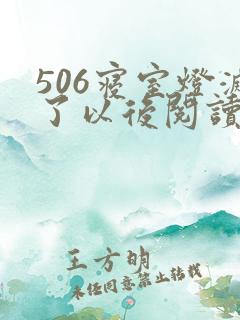 506寝室燈滅
了以後閱讀
王方明
未經同意禁止轉載